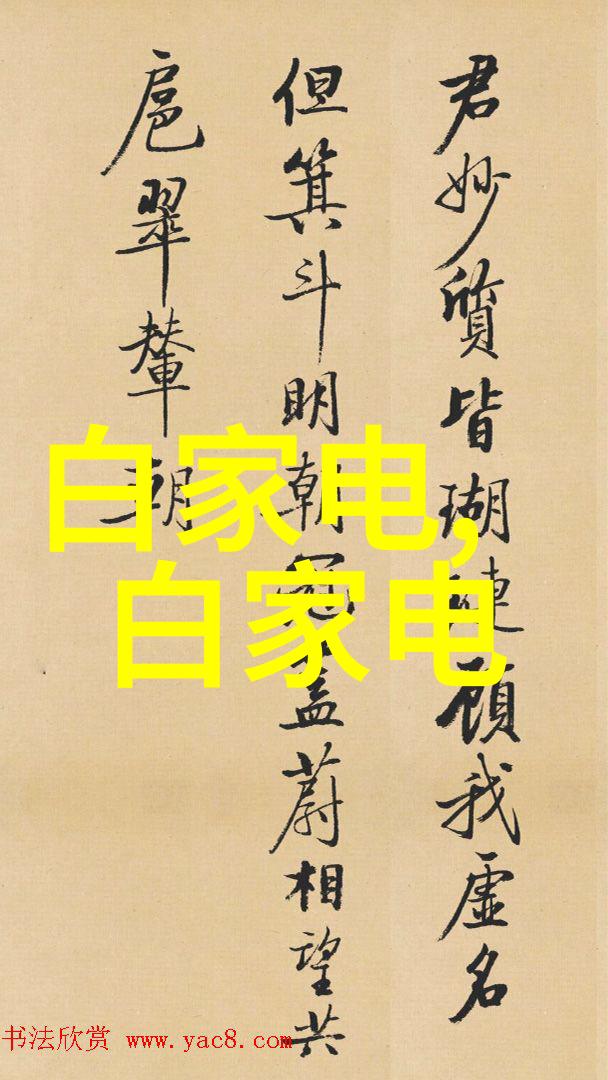 君妙質皆瑚璉顧我虛名
但箕斗明朝冠盖蔚相望共
扈翠輦朝
白家电,
白家电
书法欣赏 www.yac8.com